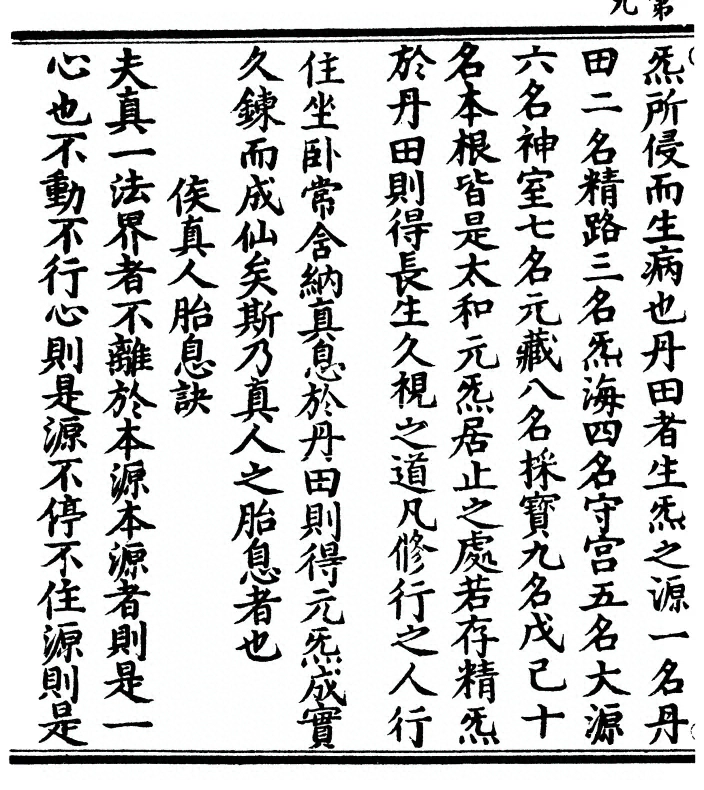 第九
炁所侵而生病也丹田者生炁之源一名丹
田二名精路三名炁海四名守宫五名大源
六名神室七名元藏八名採寳九名戊己十
名本根皆是太和元炁居止之處若存精炁
於丹田則得長生久視之道凡修行之人行
住坐卧常含納真息於丹田則得元炁成實
久鍊而成仙矣斯乃真人之胎息者也
侯真人胎息訣
夫真一法界者不離於本源本源者則是一
心也不動不行心則是源不停不住源則是